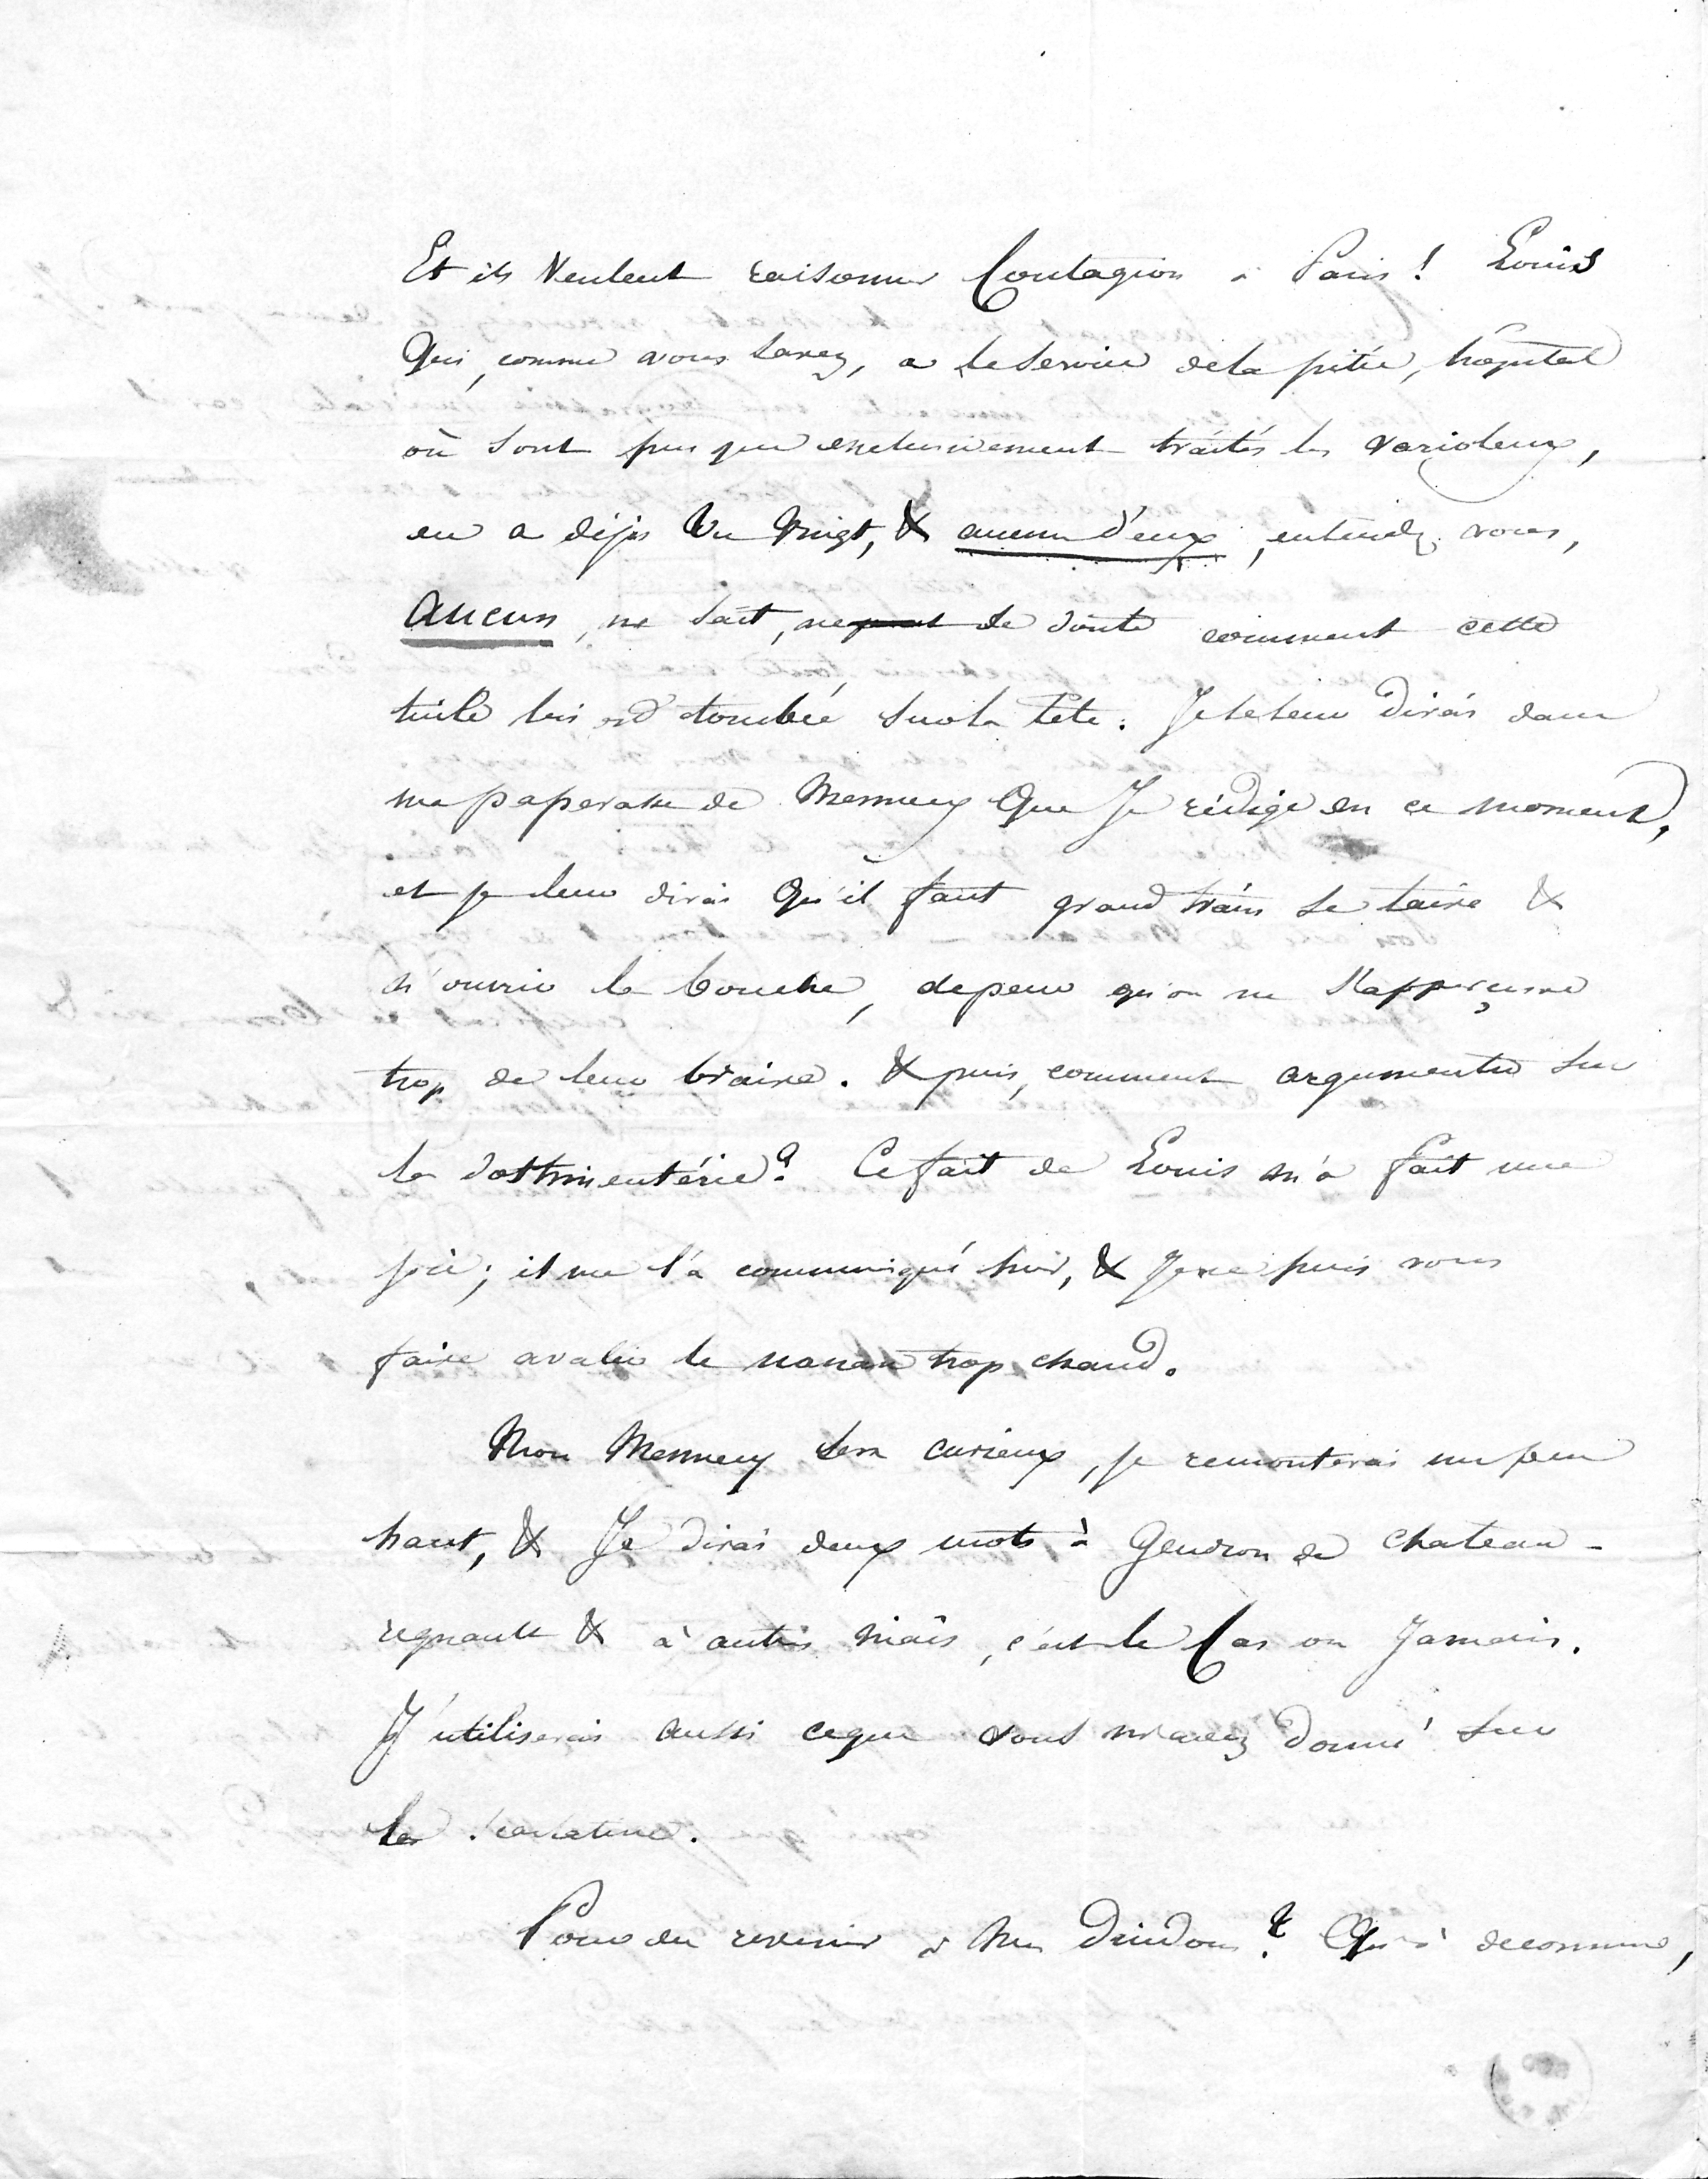 Et ils veulent raisonner Contagion à Paris! Louis
Qui, comme vous savez, a le service de la pitié, hôpital
où sont presque exclusivement traités les varioleux,
en a déjà Vu Vingt, & aucun d'eux, entendez vous,
aucun, ne sait, ne se doute comment cette
tuile lui est tombée sur la tete. Je le leur dirai dans
ma paperasse de Mennecy Que Je rédige en ce moment,
et je leur dirai Qu'il faut grand train se taire &
n'ouvrir la bouche, de peur qu'on ne s'apperçusse
trop de leur braire. & puis, comment argumenter sur
la dothinentérie? Ce fait de Louis m'a fait une
joie; il me l'a communiqué hier, & Je ne puis vous
faire avaler le nanan trop chaud.
Mon Mennecy sera curieux, je remonterai un peu
haut, & Je dirai deux mots à Gendron de Chateau-
regnault & à autres niais, c'est le Cas ou Jamais.
J'utiliserai aussi ce que vous m'avez donné sur
la scarlatine.
Pour en revenir à mes Dindons? Qui a de commune,